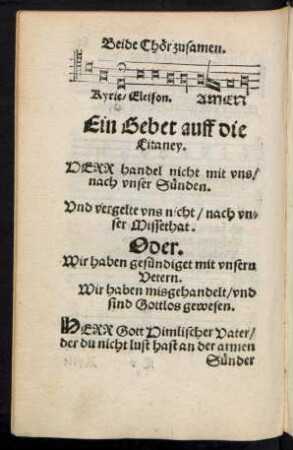 Beide Chör zusamen.
Kyrie/ Eleison. AMEN
Ein Gebet auff die
Litaney.
HERR handel nicht mit vns/
nach vnser Sünden.
Vnd vergelte vns nicht/ nach vn-
ser Missethat.
Oder.
Wir haben gesündiget mit vnsern
Vetern.
Wir haben misgehandelt/ vnd
sind Gottlos gewesen.
HERR Gott Himlischer Vater/
der du nicht lust hast an der armen
Sünder